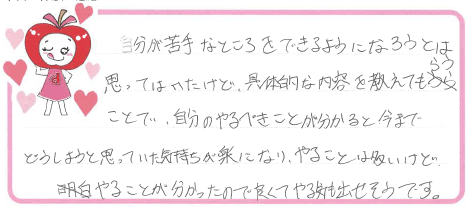 自分が苦手なところをできるようになろうとは
思ってはいたけど、具体的な内容を教えてもらう
ことで、自分のやるべきことが分かると今まで
どうしようと思っていた気持ちが楽になり、やることは多いけど、
明白やることが分かったので良くてやる気も出せそうです。